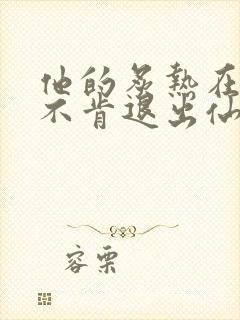 他的炙热在
不肯退出仙
容栗